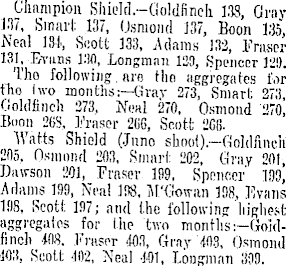 Champion Shield.—Goldfinch 138, Gray
137, Smart 137, Osmond 137, Boon 135,
Neal 134, Scott 133, Adams 132, Fraser
131, Evans 130, Longman 129, Spencer 129.
The following are the aggregates for
the two months:—Gray 273, Smart 273,
Goldfinch 273, Neal 270, Osmond 270,
Boon 268, Fraser 266, Scott 266.
Watts Shield (June shoot).—Goldfinch
205, Osmond 203, Smart 202, Gray 201,
Dawson 201, Fraser 199, Spencer 199,
Adams 199, Neal 198, M'Gowan 198, Evans
198, Scott 197; and the following highest
aggregates for the two months:—Gold-
finch 408, Fraser 403, Gray 403, Osmond
403, Scott 402, Neal 401, Longman 399.